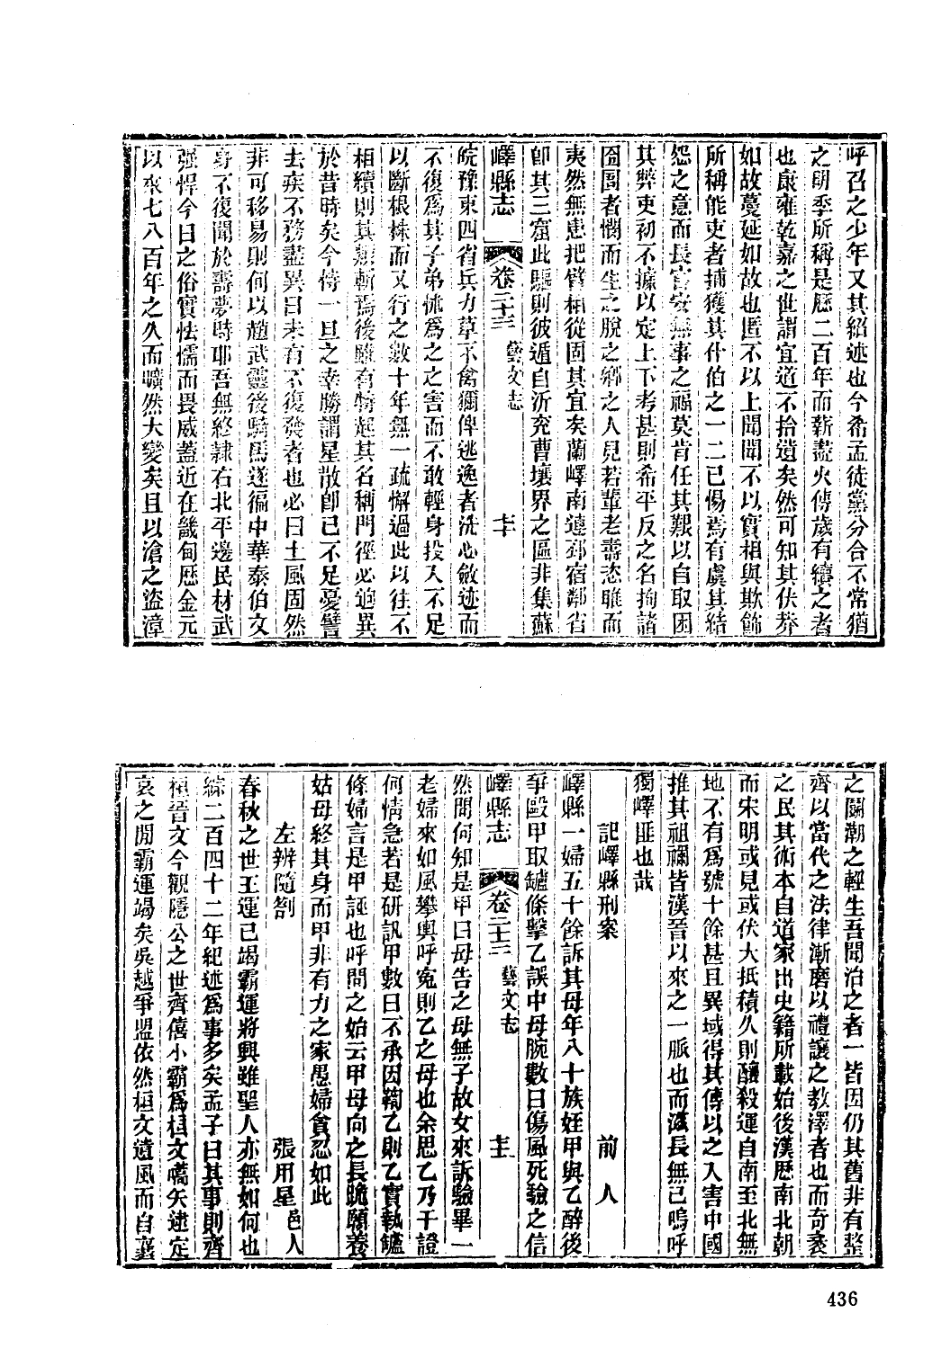 呼召之少年又其紹述也今希孟徒黨分合不常猶
之明季所稱是歷二百年而薪盡火傳歲有續之者
也康雍乾嘉之世謂宜道不拾遺矣然可知其伏莽
如故蔓延如故也匿不以上聞聞不以實相與欺飾
所稱能吏者捕獲其什伯之一二已惕焉有虞其結
怨之意而長官安無事之福莫肯任其艱以自取困
其弊吏初不據以定上下考甚則希平反之名拘諸
囹圄者憫而生之脫之鄉之人見若輩老壽恣睢而
夷然無恙把臂相從固其宜矣蘭嶧南連邳宿鄰省
即其三窟此驅則彼遁自沂兗曹壤界之區非集蘇
嶧縣志 卷二十三 藝文志
皖豫東四省兵力草薙禽獮俾逃逸者洗心斂迹而
不復為其子弟怵為之之害而不敢輕身投入不足
以斷根株而又行之數十年無一疏懈過此以往不
相續則其熄漸焉後雖有特起其名稱門徑必迥異
於昔時矣今恃一旦之幸勝謂星散即已不足憂譬
去疾不務盡異日未有不復發者也必曰土風固然
非可移易則何以趙武靈後騎馬遂徧中華泰伯文
身不復聞於壽夢時耶吾無終隸右北平邊民材武
強悍今日之俗實怯懦而畏威蓋近在畿甸歷金元
以來七八百年之久而曠然大變矣且以滄之盜漳
之關潮之輕生吾聞治之者一皆因仍其舊非有整
齊以當代之法律漸磨以禮讓之教澤者也而奇袤
之民其術本自道家出史籍所載始後漢歷南北朝
而宋明或見或伏大抵積久則釀殺運自南至北無
地不有為號十餘甚且異域得其傳以之入害中國
推其祖禰皆漢晉以來之一脈也而滋長無已嗚呼
獨嶧匪也哉
記嶧縣刑案 前人
嶧縣一婦五十餘訴其母年八十族姪甲與乙醉後
爭毆甲取鑪條擊乙誤中母腕數日傷風死驗之信
嶧縣志 卷二十三 藝文志
然問何知是甲曰母告之母無子故女來訴驗畢一
老婦來如風攀輿呼冤則乙之母也余思乙乃干證
何情急若是研訊甲數日不承因鞫乙則乙實執鑪
條婦言是甲誣也呼問之始云甲母向之長跪願養
姑母終其身而甲非有力之家愚婦貪忍如此
左辨隨劄 張用星邑人
春秋之世王運已竭霸運將興雖聖人亦無如何也
綜二百四十二年紀述為事多矣孟子曰其事則齊
桓晉文今觀隱公之世齊僖小霸為桓文嚆矢逮定
哀之間霸運竭矣吳越爭盟依然桓文遺風而自襄
436